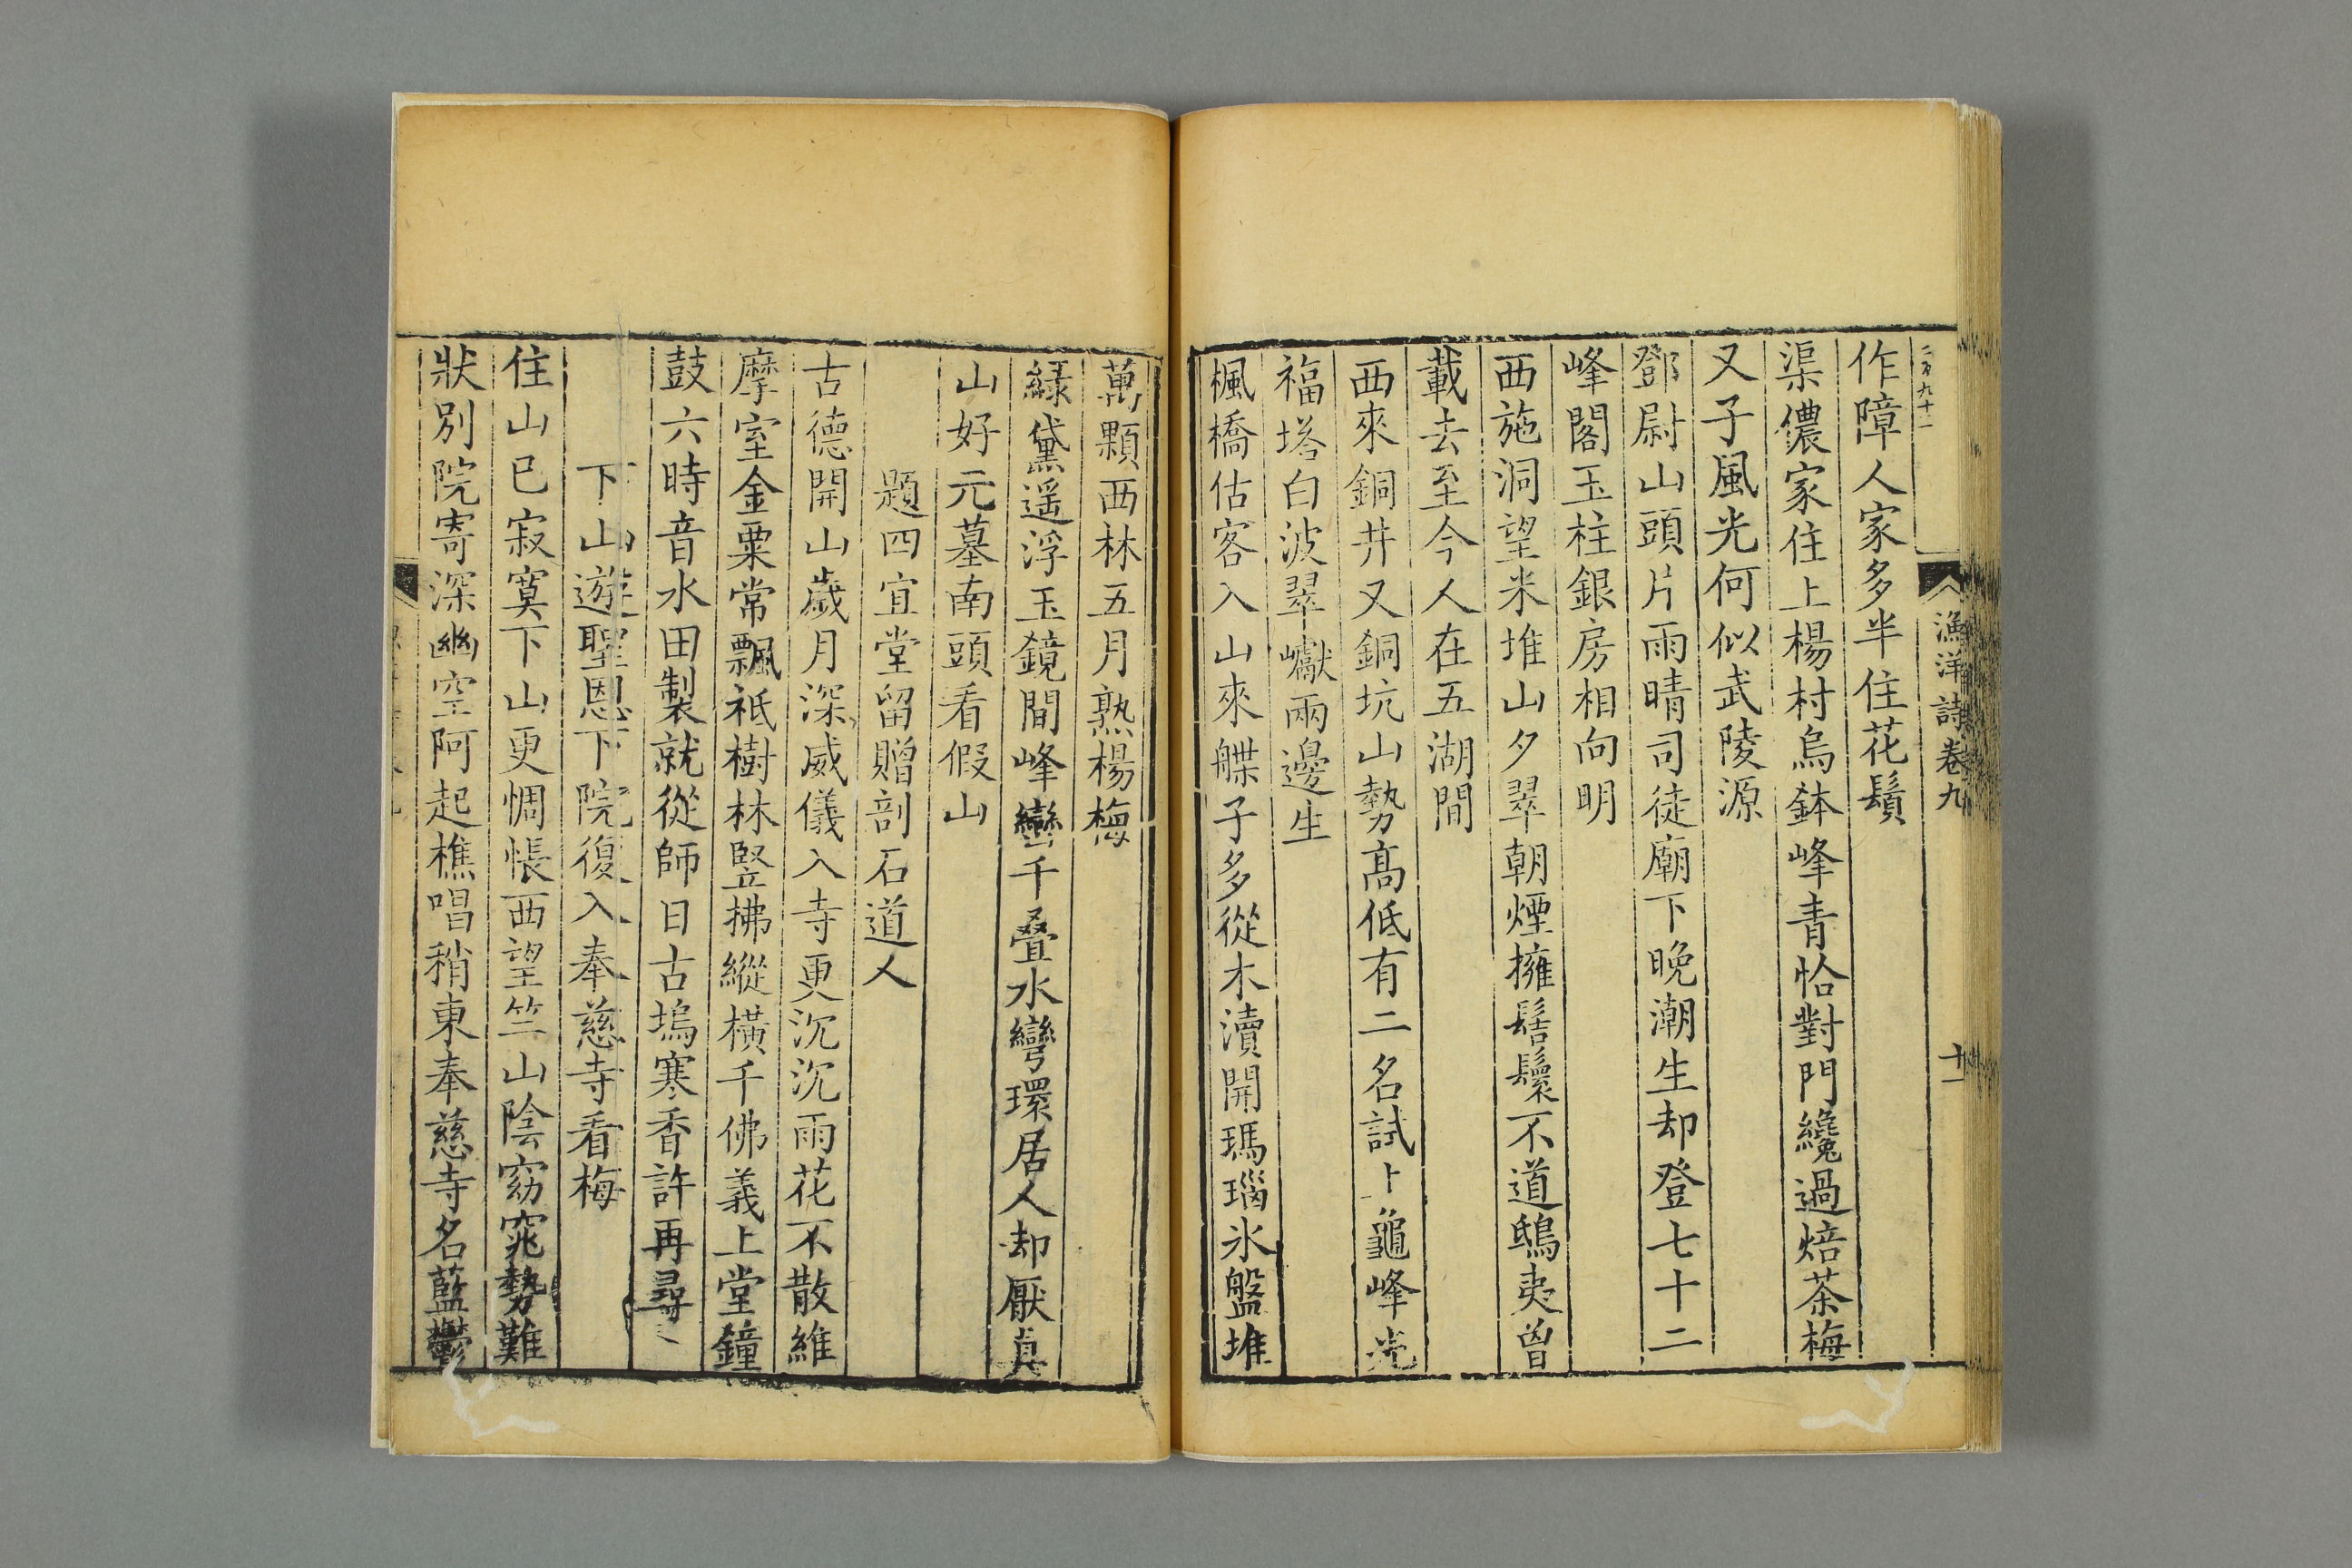 漁洋詩卷九
十一
作障人家多半住花鬚
渠儂家住上楊村烏鉢峰青恰對門纔過焙茶梅
又子風光何似武陵源
鄧尉山頭片雨晴司徒廟下晚潮生却登七十二
峰閣玉柱銀房相向明
西施洞望米堆山夕翠朝煙擁髻鬟不道鴟夷曾
載去至今人在五湖間
西來銅井又銅坑山勢高低有二名試卜龜峰光
福塔白波翠巘兩邊生
楓橋估客入山來艓子多從木瀆開瑪瑙氷盤堆
萬顆西林五月熟楊梅
緑黛遥浮玉鏡間峰巒千疊水彎環居人却厭真
山好元墓南頭看假山
題四宜堂留贈剖石道人
古德開山歲月深威儀入寺更沉沉雨花不散維
摩室金粟常飄祇樹林竪拂縱橫千佛義上堂鐘
鼓六時音水田製就從師日古塢寒香許再尋
下山遊聖恩下院復入奉慈寺看梅
住山已寂寞下山更惆悵西望竺山陰窈窕勢難
狀別院寄深幽空阿起樵唱稍東奉慈寺名藍鬱